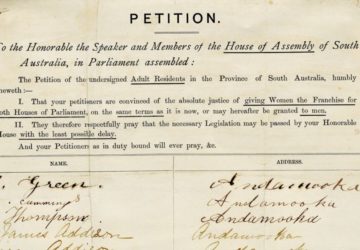 PETITION.
To the Honorable the Speaker and Members of the House of Assembly of South
Australia, in Parliament assembled:
The Petition of the undersigned Adult Residents in the Province of South Australia, humbly
sheweth:—
I. That your petitioners are convinced of the absolute justice of giving Women the Franchise for
both Houses of Parliament, on the same terms as it is now, or may hereafter be granted to men.
II. They therefore respectfully pray that the necessary Legislation may be passed by your Honorable
House with the least possible delay.
And your Petitioners as in duty bound will ever pray, &c.
NAME. ADDRESS.
Green Andamooka
Cummings Andamooka
Thompson Andamooka
James Addison Andamooka
Addison